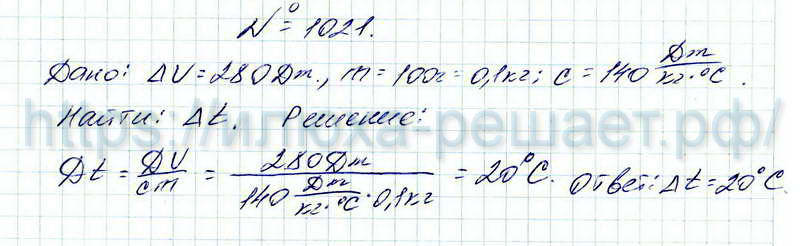 № 1021.
Дано: ΔU = 280 Дж., m = 100г = 0,1кг; c = 140 Дж/кг·°C.
Найти: Δt. Решение:
Δt = ΔU/cm = 280Дж/140 Дж/кг·°C · 0,1кг = 20°C. Ответ: Δt = 20°C